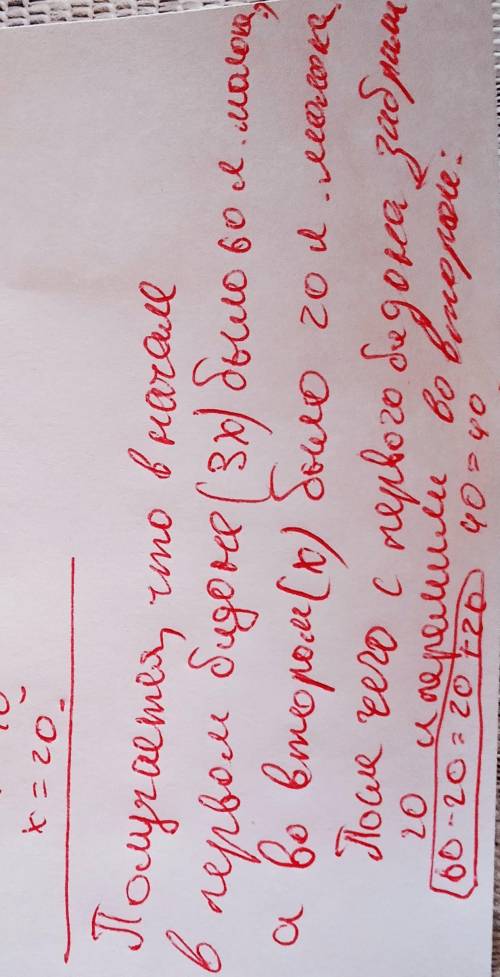 x = 20.
Получается, что в начале
в первом бидоне (3x) было 60 л. молока,
а во втором (x) было 20 л. молока.
После чего с первого бидона забрали
20 и перелили во второй:
60-20=20+20
40=40